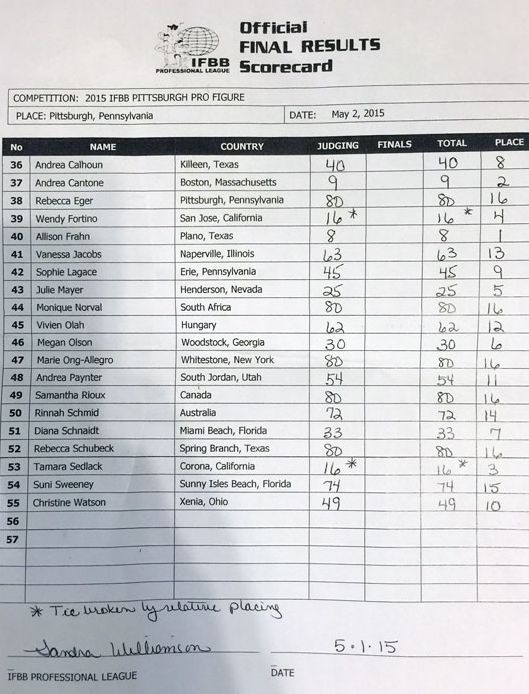 Official
FINAL RESULTS
Scorecard
IFBB
PROFESSIONAL LEAGUE
COMPETITION: 2015 IFBB PITTSBURGH PRO FIGURE
PLACE: Pittsburgh, Pennsylvania DATE: May 2, 2015
No NAME COUNTRY JUDGING FINALS TOTAL PLACE
36 Andrea Calhoun Killeen, Texas 40 40 8
37 Andrea Cantone Boston, Massachusetts 9 9 2
38 Rebecca Eger Pittsburgh, Pennsylvania 80 80 16
39 Wendy Fortino San Jose, California 16 * 16 * 4
40 Allison Frahn Plano, Texas 8 8 1
41 Vanessa Jacobs Naperville, Illinois 63 63 13
42 Sophie Lagace Erie, Pennsylvania 45 45 9
43 Julie Mayer Henderson, Nevada 25 25 5
44 Monique Norval South Africa 80 80 16
45 Vivien Olah Hungary 62 62 12
46 Megan Olson Woodstock, Georgia 30 30 6
47 Marie Ong-Allegro Whitestone, New York 80 80 16
48 Andrea Paynter South Jordan, Utah 54 54 11
49 Samantha Rioux Canada 80 80 16
50 Rinnah Schmid Australia 72 72 14
51 Diana Schnaidt Miami Beach, Florida 33 33 7
52 Rebecca Schubeck Spring Branch, Texas 80 80 16
53 Tamara Sedlack Corona, California 16 * 16 * 3
54 Suni Sweeney Sunny Isles Beach, Florida 74 74 15
55 Christine Watson Xenia, Ohio 49 49 10
56
57
* Tie broken by relative placing
Sandra Williamson 5.1.15
IFBB PROFESSIONAL LEAGUE DATE